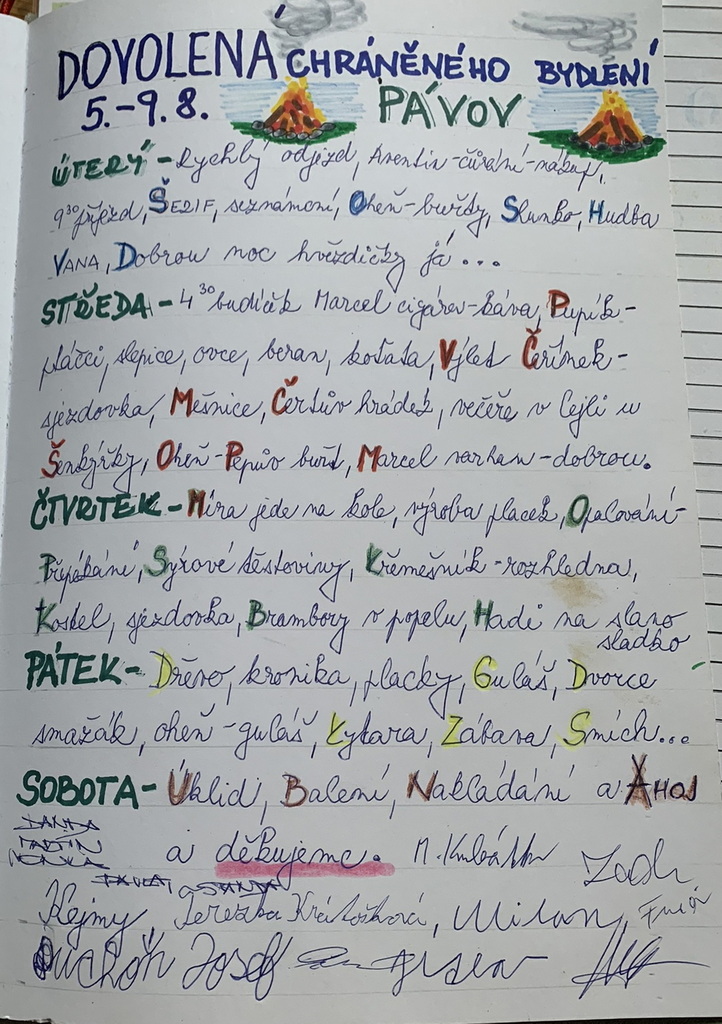 DOVOLENÁ CHRÁNĚNÉHO BYDLENÍ
5.-9.8. PÁVOV
ÚTERÝ - Rychlý odjezd, Aventin-čůrání-nákup,
9³⁰ příjezd, ŠERIF, seznámení, Oheň-buřty, Slunko, Hudba
VANA, Dobrou noc hvězdičky já...
STŘEDA - 4³⁰ budíček Marcel cigárev-káva, Pupík-
ptáčci, slepice, ovce, beran, koťata, Výlet Čeřínek-
sjezdovka, Mešnice, Čertův hrádek, večeře v Cejli u
Šenkýřky, Oheň-Pepův buřt, Marcel varhan-dobrou.
ČTVRTEK - Míra jede na kole, výroba placek, Opalování-
Připékání, Sýrové těstoviny, Křemešník-rozhledna,
Kostel, sjezdovka, Brambory v popelu, Hadi na slano
sladko
PÁTEK - Dřevo, kronika, placky, Guláš, Dvorce
smažák, oheň-guláš, Kytara, Zábava, Smích...
SOBOTA - Úklid, Balení, Nakládání a AHOJ
a děkujeme.
Kejmy, Terezka Krátošková, Milan,
Josef